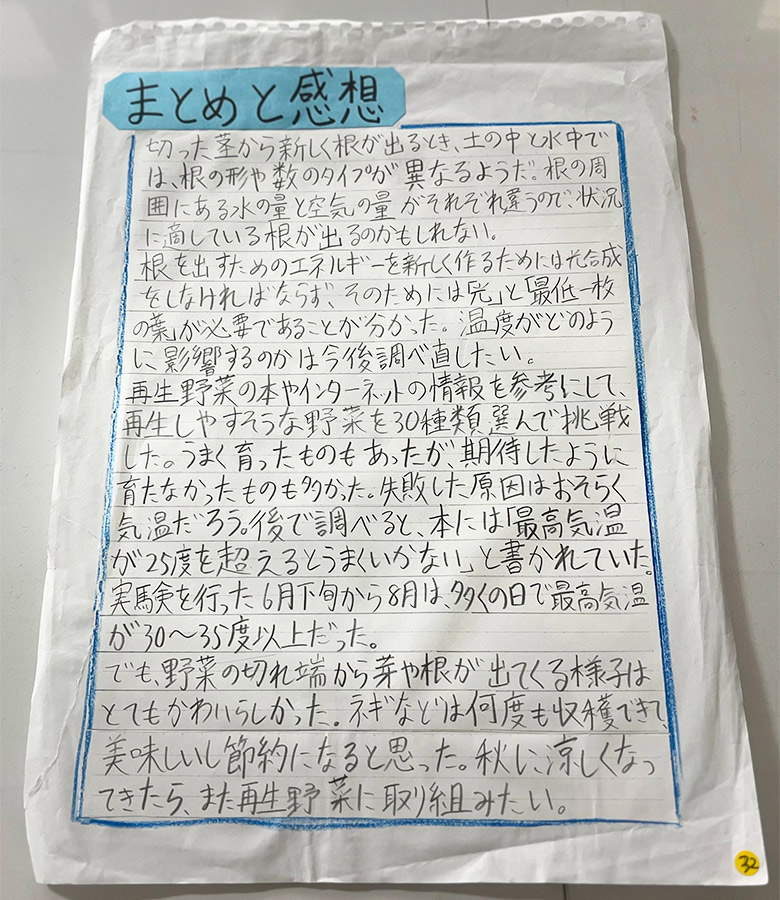 まとめと感想
切った茎から新しく根が出るとき、土の中と水中で
は、根の形や数のタイプが異なるようだ。根の周
囲にある水の量と空気の量がそれぞれ違うので、状況
に適している根が出るのかもしれない。
根を出すためのエネルギーを新しく作るためには光合成
をしなければならず、そのためには「光」と「最低一枚
の葉」が必要であることが分かった。温度がどのよう
に影響するのかは今後調べ直したい。
再生野菜の本やインターネットの情報を参考にして、
再生しやすそうな野菜を30種類選んで挑戦
した。うまく育ったものもあったが、期待したように
育たなかったものも多かった。失敗した原因はおそらく
気温だろう。後で調べると、本には「最高気温
が25度を超えるとうまくいかない」と書かれていた。
実験を行った6月下旬から8月は、多くの日で最高気温
が30〜35度以上だった。
でも、野菜の切れ端から芽や根が出てくる様子は
とてもかわいらしかった。ネギなどは何度も収穫できて、
美味しいし節約になると思った。秋に涼しくなっ
てきたら、また再生野菜に取り組みたい。
32